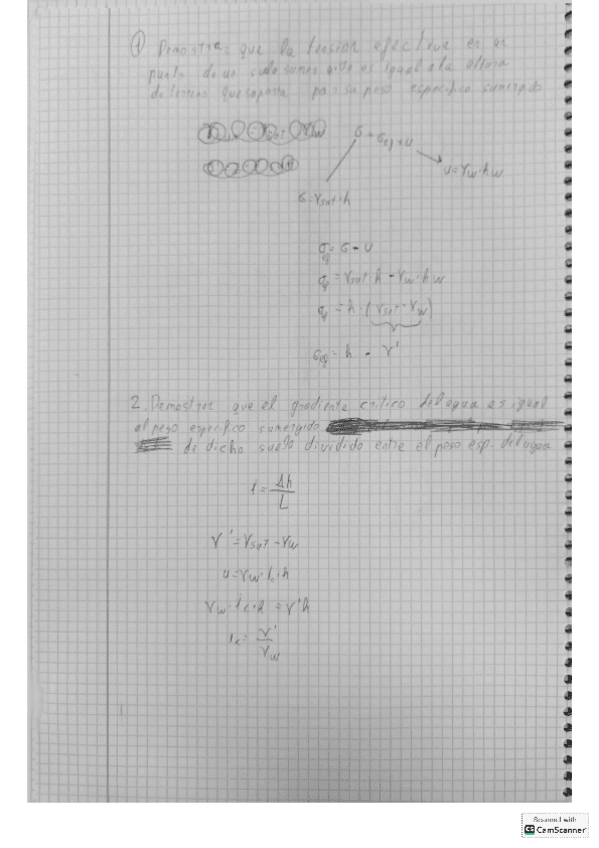 ① Demostrar que la tensión efectiva en un
punto de un suelo sumergido es igual a la altura
de terreno que soporta por su peso especifico sumergido
σ = σef + u
u = γw · hw
σ = γsat · h
σef = σ - u
σef = γsat · h - γw · hw
σef = h · (γsat - γw)
σef = h · γ'
2. Demostrar que el gradiente critico del agua es igual
al peso especifico sumergido
de dicho suelo dividido entre el peso esp. del agua
i = Δh / L
γ' = γsat - γw
u = γw · ic · h
γw · ic · h = γ' h
ic = γ' / γw
Scanned with
CS CamScanner